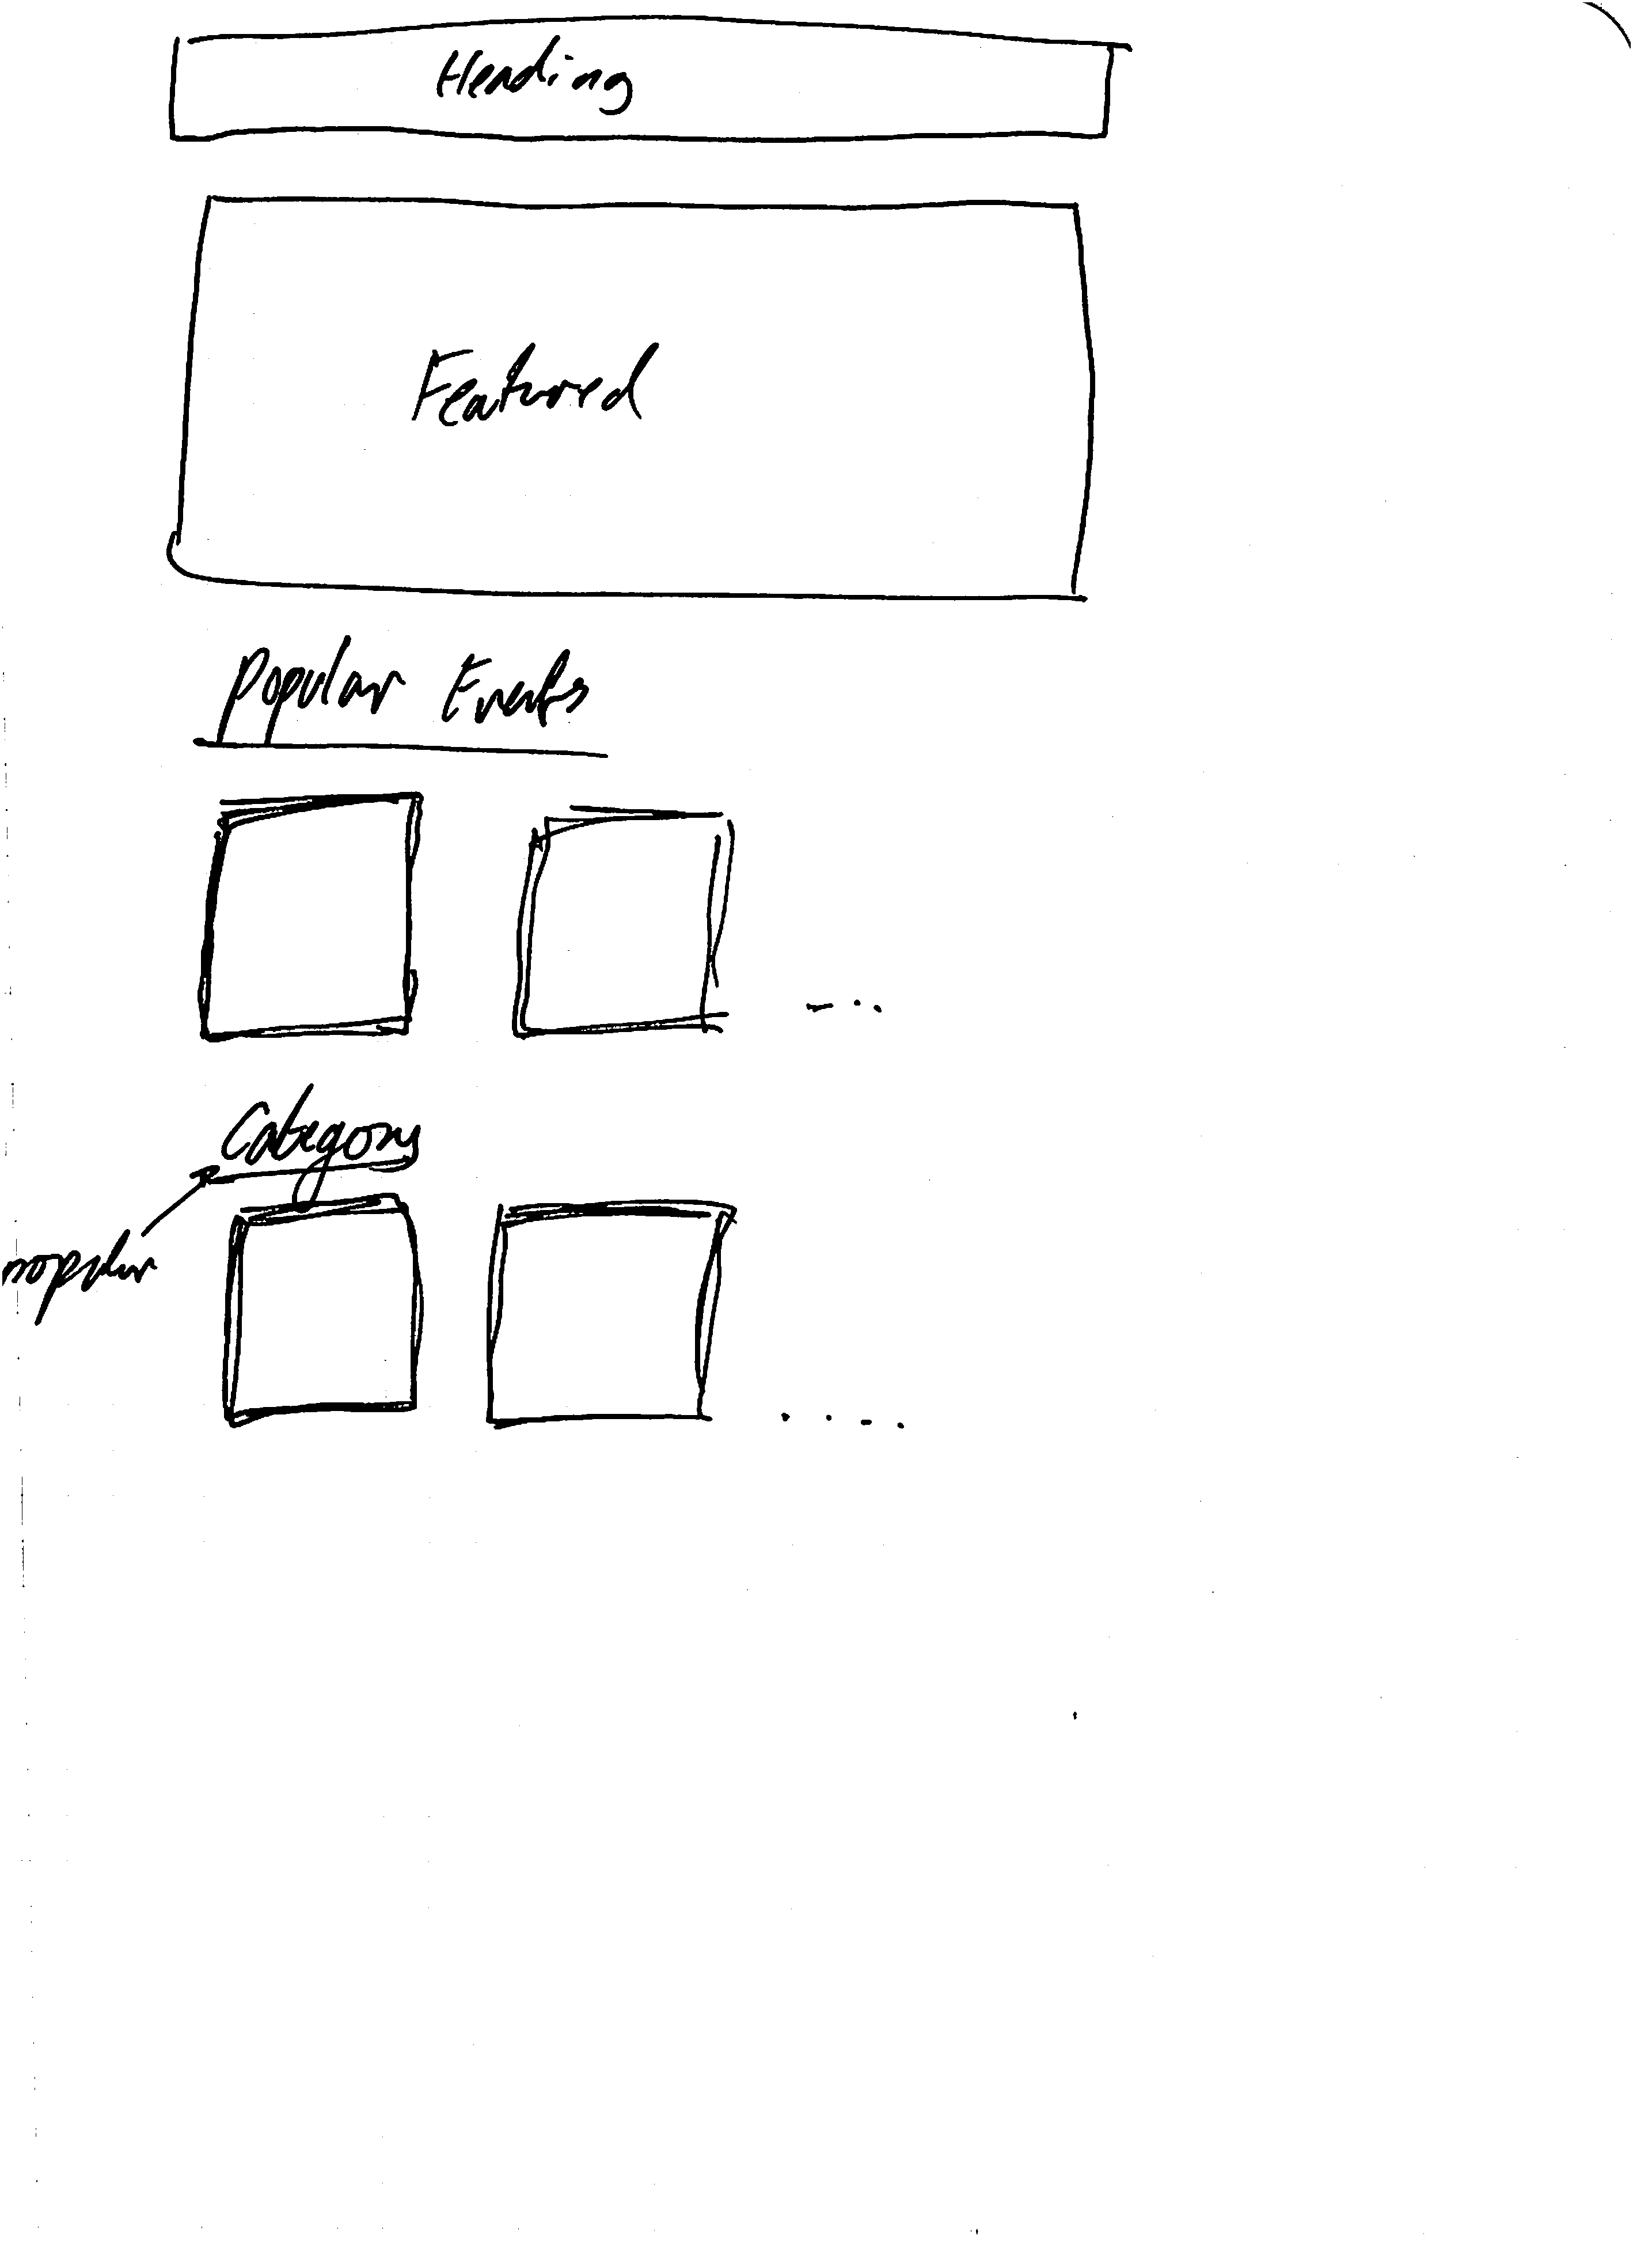 Heading
Featured
Popular Events
Category